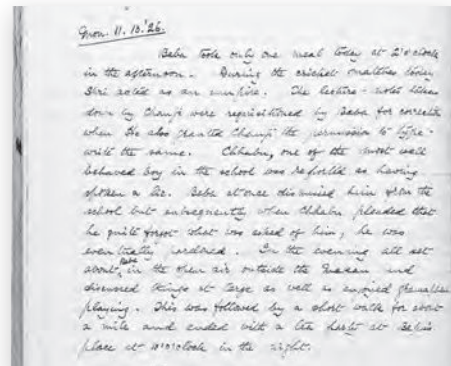 Mon. 11.10.'26.
Baba took only one meal today at 2 o'clock
in the afternoon. During the cricket matches today
Shri acted as an umpire. The lecture-notes taken
down by Chanji were requisitioned by Baba for correction
when He also granted Chanji the permission to type-
write the same. Chhabu, one of the most well
behaved boy in the school was reported as having
spoken a lie. Baba at once dismissed him from the
school but subsequently when Chhabu pleaded that
he quite forgot what was asked of him, he was
eventually pardoned. In the evening all sat
about Baba in the open air outside the and
discussed things at large as well as enjoyed gramophone
playing. This was followed by a short walk for about
a mile and ended with a tea party at
place at 10 o'clock in the night.